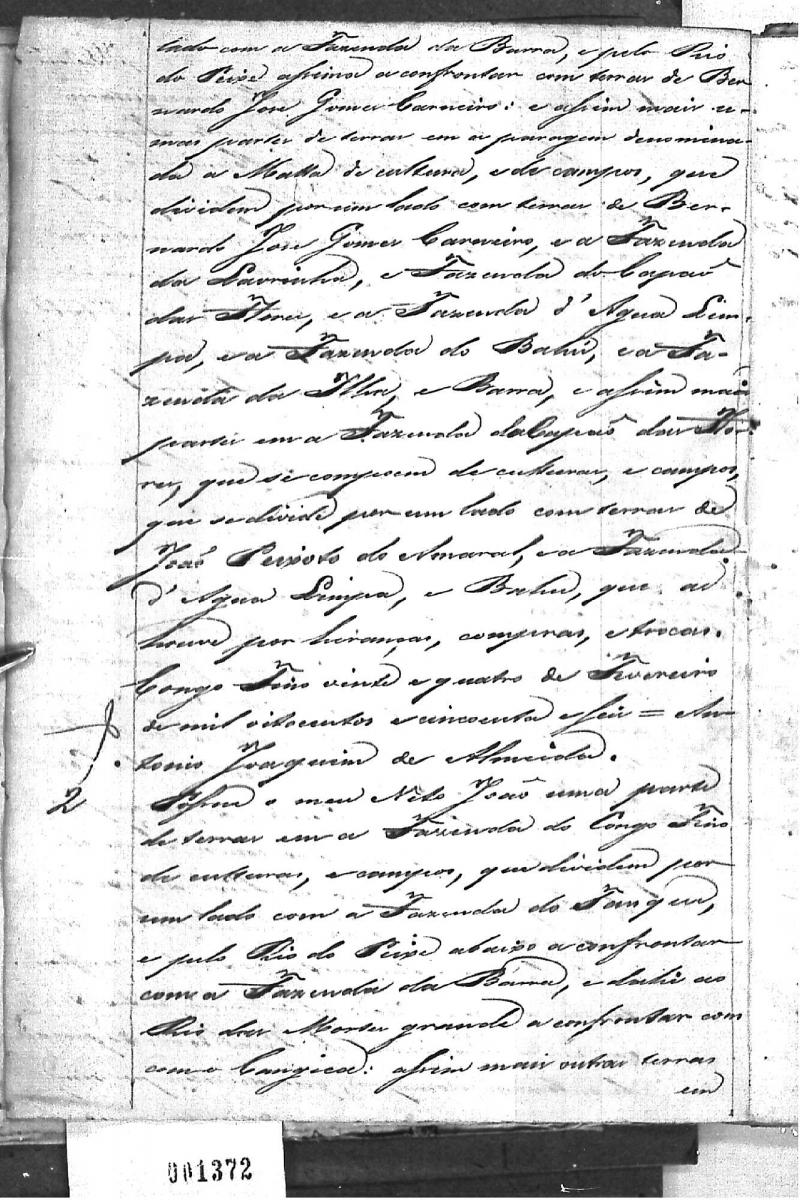 lado com a Fazenda da Barra, e pelo Rio
do Peixe assima a confrontar com terras de Ber
nardo Jose Gomes Carneiro: e assim mais u-
mas partes de terras em a paragem denomina-
da a Matta de cultura, e de campos, que
dividem por um lado com terras de Ber-
nardo Jose Gomes Carneiro, e a Fazenda
da Lavrinha, e Fazenda do Capaõ
das Flores, e a Fazenda d'Agua Lim-
pa, e a Fazenda do Bahú, e a Fa-
zenda da Ilha, e Barra, e assim mais
partes em a Fazenda do Capaõ das Flo-
res, que se compoem de culturas, e campos,
que se divide por um lado com terras de
Joaõ Peixoto do Amaral, e a Fazenda
d'Agua Limpa, e Bahu, que as
houve por heranças, compras, e trocas.
Congo Fino vinte e quatro de Fevereiro
de mil oitocentos e cincoenta e seis = An-
tonio Joaquim de Almeida.
2
o meu Neto Joaõ uma parte
de terras em a Fazenda do Congo Fino
de culturas, e campos, que dividem por
um lado com a Fazenda do Tanque,
e pelo Rio do Peixe abaixo a confrontar
com a Fazenda da Barra, e dahi ao
Rio das Mortes grande a confrontar com
com o Cangica: assim mais outras terras
em
001372